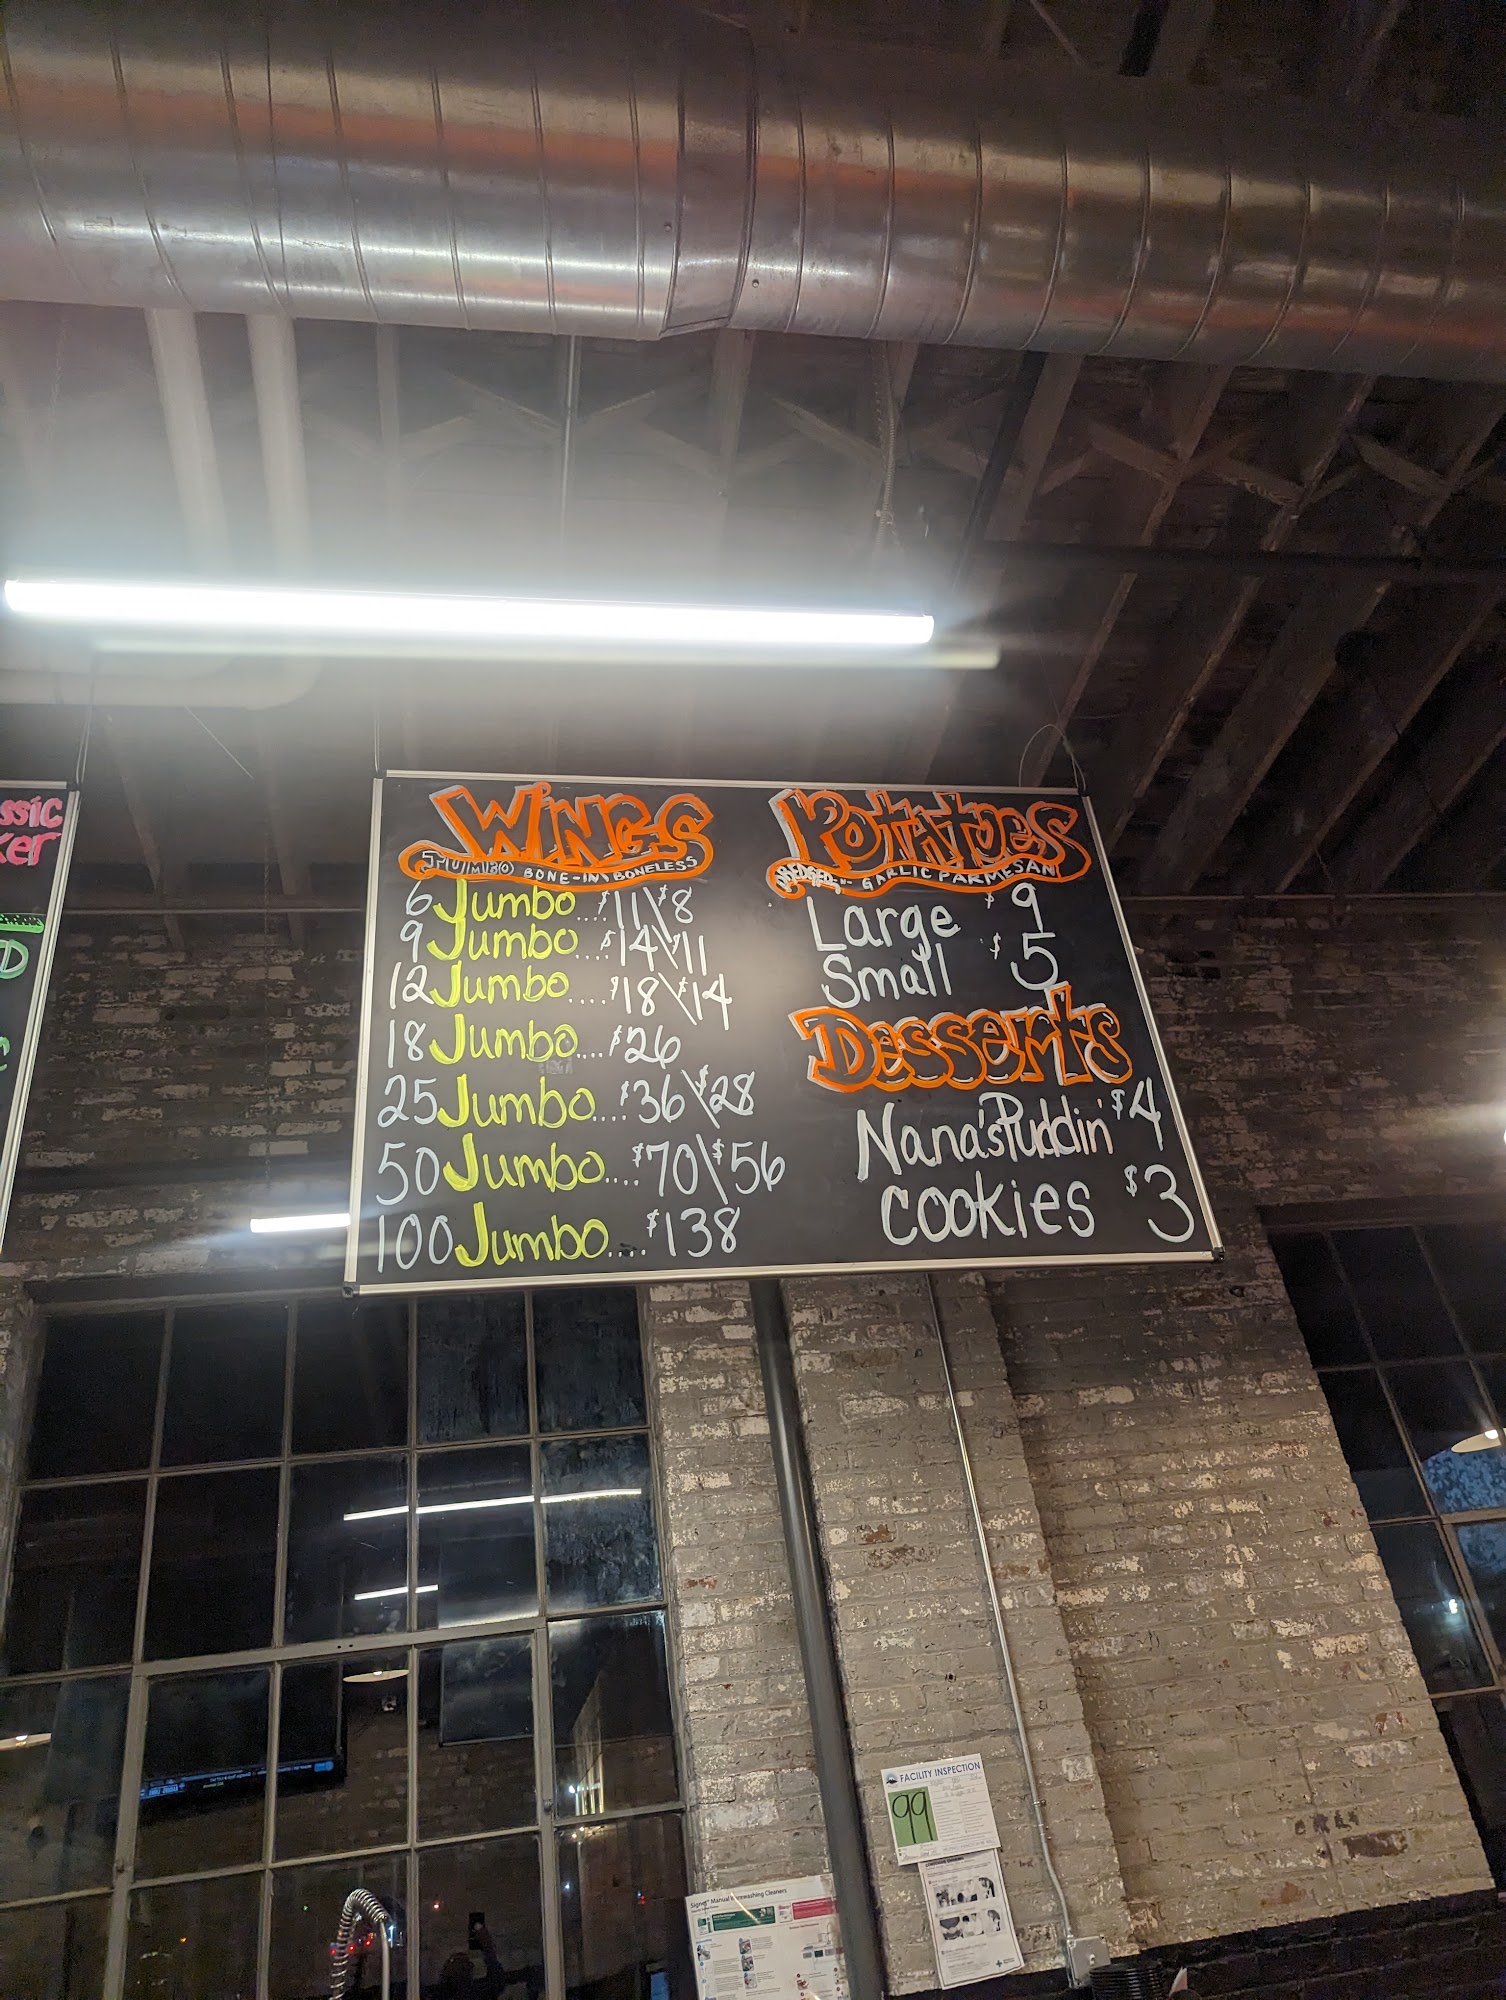 ssic
ker
D
C
WINGS
JUMBO BONE-IN\BONELESS
6 Jumbo....$11\$8
9 Jumbo....$14\$11
12 Jumbo....$18\$14
18 Jumbo....$26
25 Jumbo....$36\$28
50 Jumbo....$70\$56
100 Jumbo....$138
POTATOES
GARLIC PARMESAN
Large $9
Small $5
Desserts
Nana'sPuddin' $4
COOKIES $3
FACILITY INSPECTION
99
Manual Warewashing Cleaners